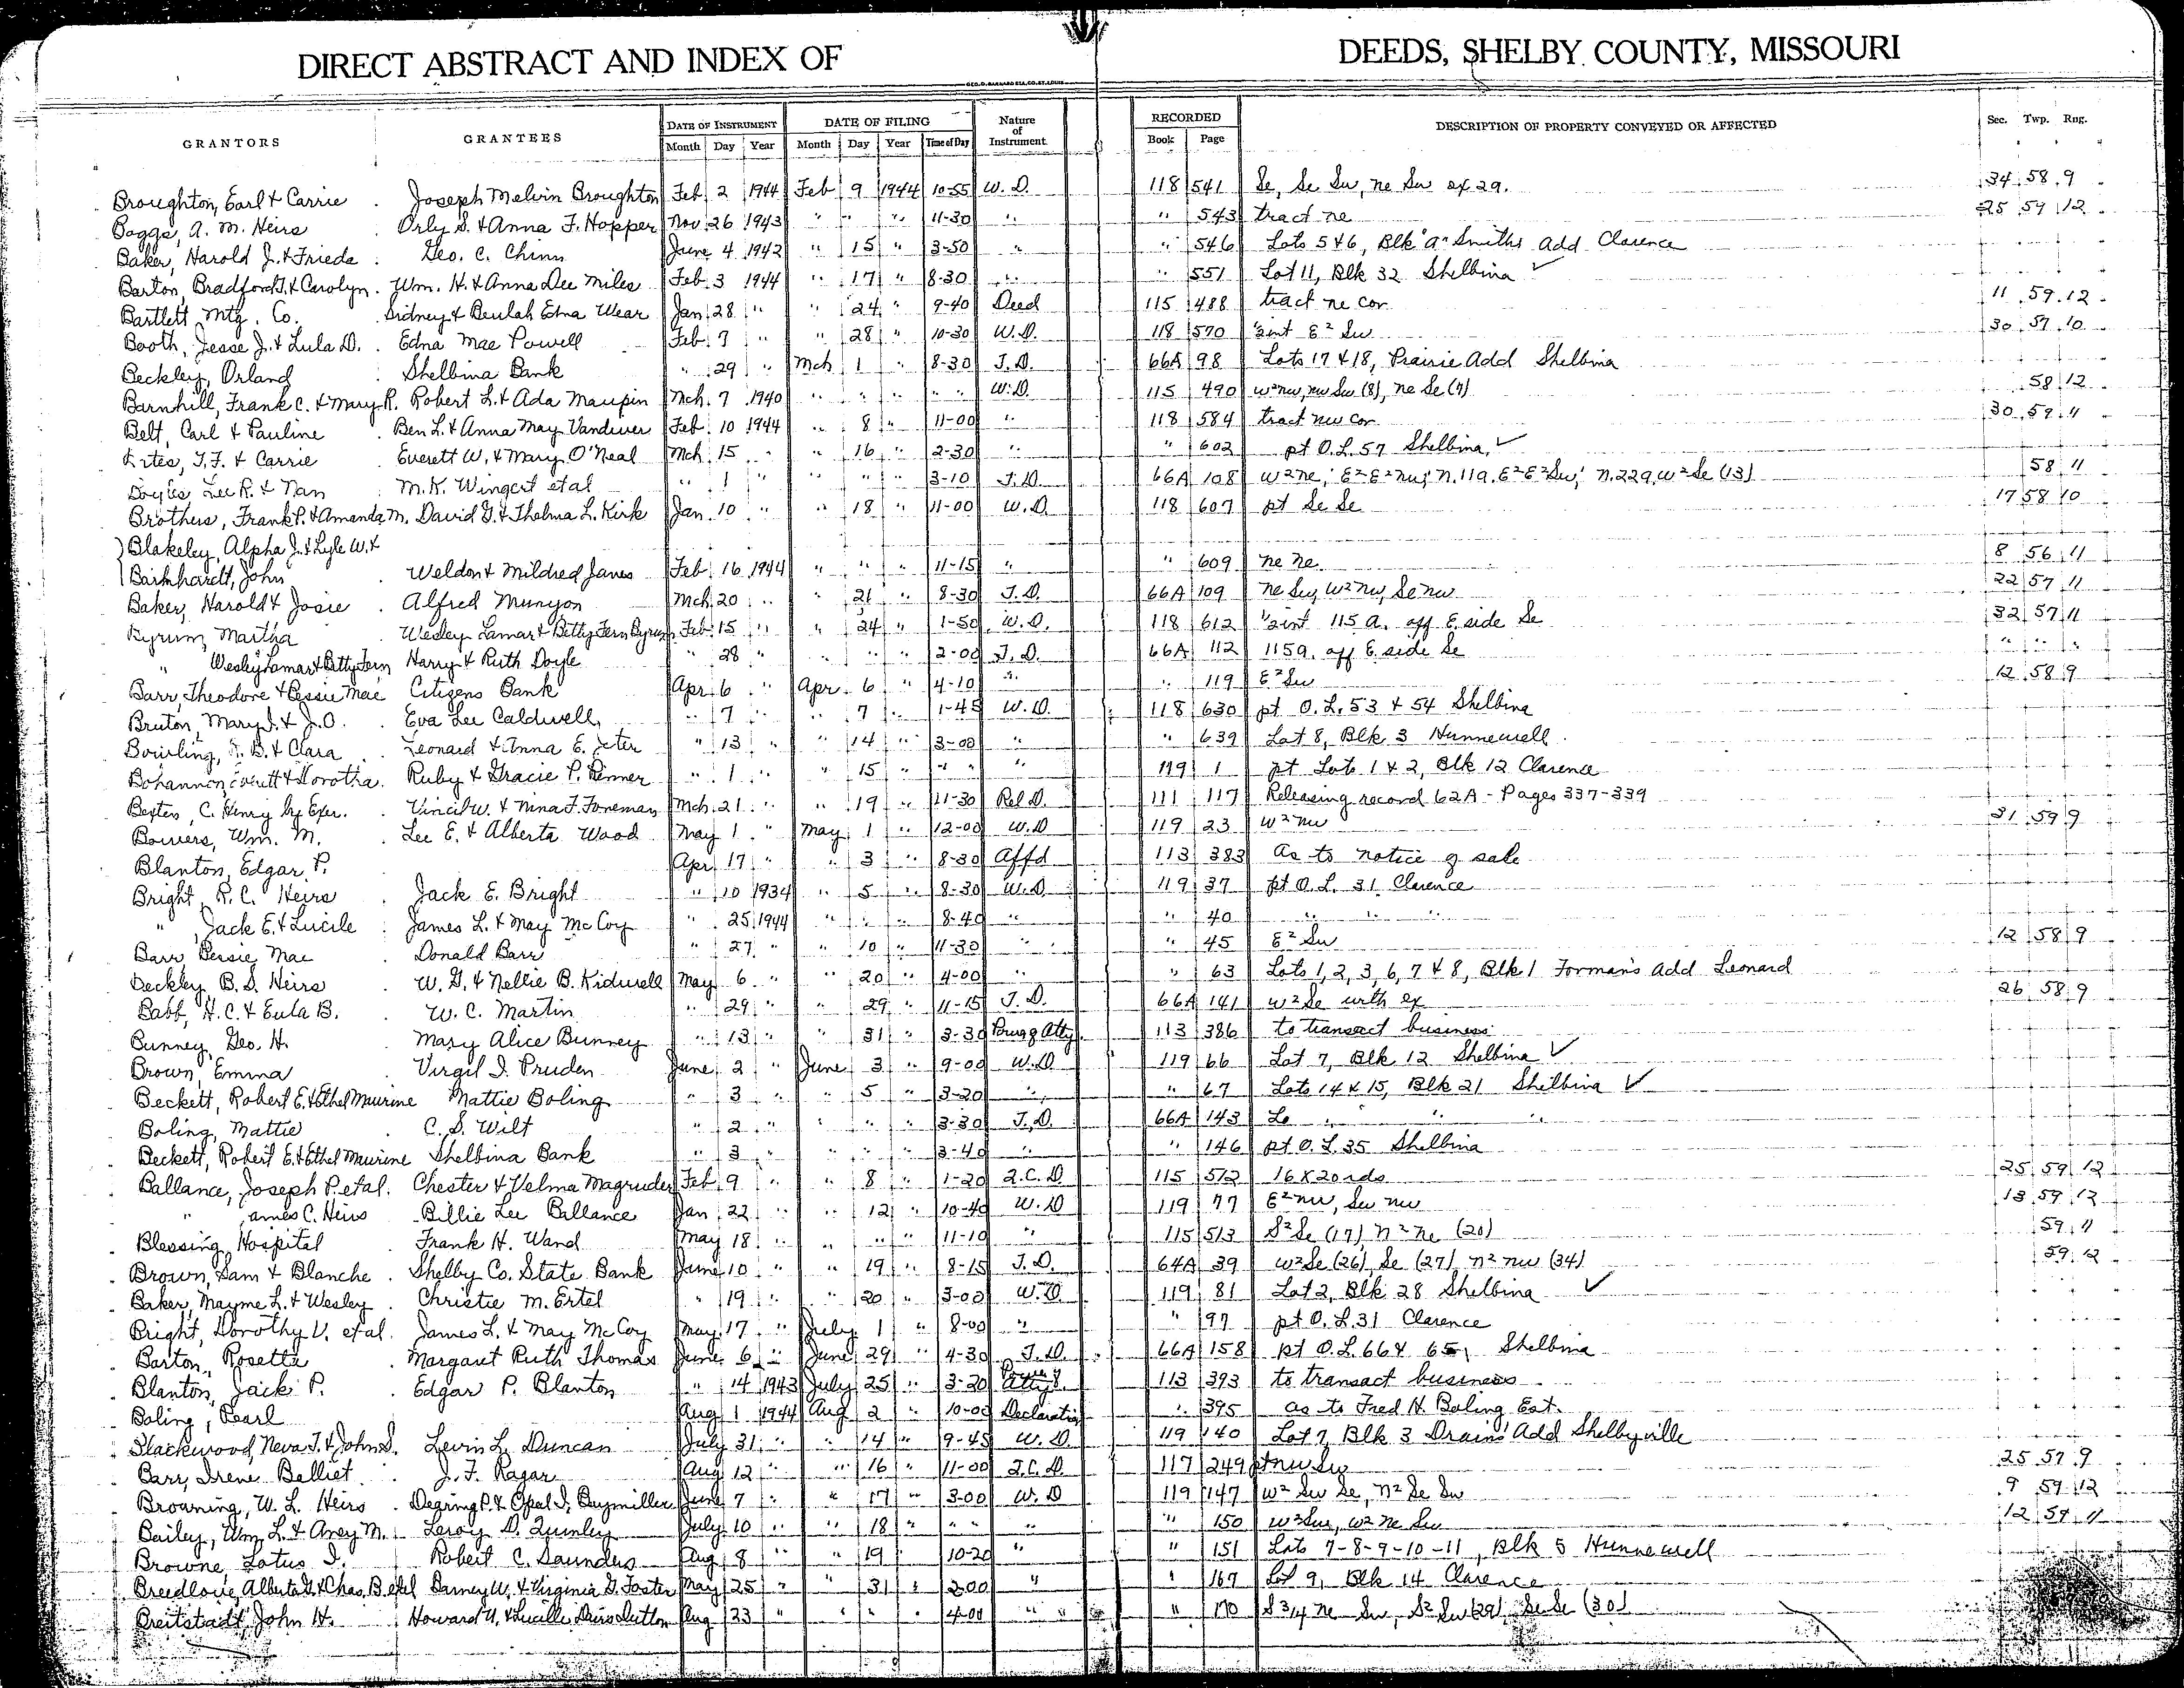 DIRECT ABSTRACT AND INDEX OF DEEDS, SHELBY COUNTY, MISSOURI
GRANTORS GRANTEES DATE OF INSTRUMENT DATE OF FILING Nature of Instrument RECORDED DESCRIPTION OF PROPERTY CONVEYED OR AFFECTED Sec. Twp. Rng.
Month Day Year Month Day Year Time of Day Book Page
Broughton, Earl & Carrie Joseph Melvin Broughton Feb 2 1944 Feb 9 1944 10-55 W.D. 118 541 Se, Se Sw, ne Sw ex 2a. 34 58 9
Boggs, A. M. Heirs Orly S. & Anna F. Hopper Nov 26 1943 " " " 11-30 " " 543 tract ne 25 59 12
Baker, Harold J. & Frieda Geo. C. Chinn June 4 1942 " 15 " 3-50 " " 546 Lots 5 & 6, Blk "a" Smiths Add Clarence
Barton, Bradford T. & Carolyn Wm. H. & Anna Dee Miles Feb. 3 1944 " 17 " 8-30 " " 551 Lot 11, Blk 32 Shelbina ✓
Bartlett Mtg. Co. Sidney & Beulah Edna Wear Jan 28 " " 24 " 9-40 Deed 115 488 tract ne cor 11 59 12
Booth, Jesse J. & Lula D. Edna Mae Powell Feb. 7 " " 28 " 10-30 W.D. 118 570 int E² Sw 30 57 10
Beckley, Orland Shelbina Bank " 29 " Mch 1 " 8-30 T.D. 66A 98 Lots 17 & 18, Prairie Add Shelbina
Barnhill, Frank C. & Mary R. Robert L. & Ada Maupin Mch. 7 1940 " " " " W.D. 115 490 w² nw, nw Sw (8), ne Se (7) 58 12
Belt, Carl & Pauline Ben L. & Anna May Vandiver Feb. 10 1944 " 8 " 11-00 " 118 584 tract nw cor 30 59 11
T.F. & Carrie Everett W. & Mary O'Neal Mch. 15 " " 16 " 2-30 " " 602 pt O.L. 57 Shelbina ✓
Lee R. & Nan M.K. Wingert etal " 1 " " " " 3-10 T.D. 66A 108 w² ne; E² E² nw; n. 11a. E² E² Sw; n. 22a, w² Se (13) 58 11
Brothers, Frank P. & Amanda M. David G. & Thelma L. Kirk Jan. 10 " " 18 " 11-00 W.D. 118 607 pt Se Se 17 58 10
Blakeley, Alpha J. & Lyle W. &
Barnhardt, John Weldon & Mildred Janes Feb. 16 1944 " " " 11-15 " " 609 ne ne 8 56 11
Baker, Harold & Josie Alfred Munyon Mch. 20 " " 21 " 8-30 T.D. 66A 109 ne Sw, W² nw, Se nw 22 57 11
Byrum, Martha Wesley Lamar & Betty Fern Byrum Feb. 15 " " 24 " 1-50 W.D. 118 612 int 115 a. off E. side Se 32 57 11
" Wesley Lamar & Betty Fern Harry & Ruth Doyle " 28 " " " " 2-00 T.D. 66A 112 115a. off E. side Se " " "
Barr, Theodore & Bessie Mae Citizens Bank Apr. 6 " Apr. 6 " 4-10 " " 119 E² Sw 12 58 9
Bruton, Mary J. & J.O. Eva Lee Caldwell " 7 " " 7 " 1-45 W.D. 118 630 pt O.L. 53 & 54 Shelbina
Bowling, & Clara Leonard & Anna E. Jeter " 13 " " 14 " 3-00 " " 639 Lot 8, Blk 3 Hunnewell
Bohannon, Everett & Dorotha Ruby & Gracie P. Renner " 1 " " 15 " " " " 119 1 pt Lots 1 & 2, Blk 12 Clarence
C. Henry by Exer. Vincil W. & Nina F. Foreman Mch. 21 " " 19 " 11-30 Rel D. 111 117 Releasing record 62A - Pages 337-339
Bowers, Wm. M. Lee E. & Alberta Wood May 1 " May 1 " 12-00 W.D 119 23 w² nw 31 59 9
Blanton, Edgar P. Apr 17 " " 3 " 8-30 Affd 113 383 As to notice of sale
Bright, R.C. Heirs Jack E. Bright " 10 1934 " 5 " 8-30 W.D. 119 37 pt O.L. 31 Clarence
" , Jack E. & Lucile James L. & May McCoy " 25 1944 " " " 8-40 " " 40 " " "
Barr, Bessie Mae Donald Barr " 27 " " 10 " 11-30 " " 45 E² Sw 12 58 9
Beckley, B.S. Heirs W. G. & Nellie B. Kidwell May 6 " " 20 " 4-00 " " 63 Lots 1, 2, 3, 6, 7 & 8, Blk 1 Forman's Add Leonard
Babb, H.C. & Eula B. W. C. Martin " 29 " " 29 " 11-15 T.D. 66A 141 w² Se with ex 26 58 9
Bunney, Geo. H. Mary Alice Bunney " 13 " " 31 " 3-30 Pow of Atty 113 386 to transact business
Brown, Emma Virgil I. Pruden June 2 " June 3 " 9-00 W.D 119 66 Lot 7, Blk 12 Shelbina ✓
Beckett, Robert E. & Ethel Maurine Mattie Boling " 3 " " 5 " 3-20 " " 67 Lots 14 & 15, Blk 21 Shelbina ✓
Boling, Mattie C. S. Wilt " 2 " " " " 3-30 T.D. 66A 143 Lo " " "
Beckett, Robert E. & Ethel Maurine Shelbina Bank " 3 " " " " 3-40 " " 146 pt O.L. 35 Shelbina
Ballance, Joseph P. etal. Chester & Velma Magruder Feb. 9 " " 8 " 1-20 Q.C.D 115 512 16 X 20 rds 25 59 12
" ames C. Heirs Billie Lee Ballance Jan 22 " " 12 " 10-40 W.D 119 77 E² nw, Sw nw 13 59 12
Blessing Hospital Frank H. Wand May 18 " " " " 11-10 " 115 513 S² Se (17) n² ne (20) 59 11
Brown, Sam & Blanche Shelby Co. State Bank June 10 " " 19 " 8-15 T.D. 64A 39 w² Se (26), Se (27) n² nw (34) 59 12
Baker, Mayme L. & Wesley Christie M. Ertel " 19 " " 20 " 3-00 W.D. 119 81 Lot 2, Blk 28 Shelbina ✓
Bright, Dorothy V. et al. James L. & May McCoy May 17 " July 1 " 8-00 " " 97 pt O.L. 31 Clarence
Barton, Rosetta Margaret Ruth Thomas June 6 " June 29 " 4-30 T.D. 66A 158 pt O.L. 66 & 65, Shelbina
Blanton, Jack P. Edgar P. Blanton " 14 1943 July 25 " 3-20 Atty 113 393 to transact business
Boling, Pearl Aug 1 1944 Aug 2 " 10-00 Declaration " 395 as to Fred H. Boling Est.
Blackwood, Neva T. & John S. Levin L. Duncan July 31 " " 14 " 9-45 W.D. 119 140 Lot 7, Blk 3 Drains' Add Shelbyville
Barr, Irene Belliet J. F. Ragar Aug 12 " " 16 " 11-00 Q.C.D 117 249 pt nw Sw 25 57 9
Browning, W. L. Heirs Degring P. & Opal I. Buzmiller June 7 " " 17 " 3-00 W.D 119 147 w² Sw Se, n² Se Sw 9 59 12
Bailey, Wm. L. & Arey M. Leroy D. Quinley July 10 " " 18 " " " " " 150 w² Sw, w² ne Sw 12 59 11
Browne, Lotus I. Robert C. Saunders Aug 8 " " 19 10-20 " " 151 Lots 7-8-9-10-11, Blk 5 Hunnewell
Breedlove, Alberta G. & Chas. B. etal Barney W. & Virginia G. Foster May 25 " " 31 " 2-00 " " 167 Lot 9, Blk 14 Clarence
Breitstadt, John H. Howard U. & Lucille Dutton Aug 23 " " " " 4-00 " " " 170 S 3/4 ne Sw, S² Sw (29), Se Se (30)